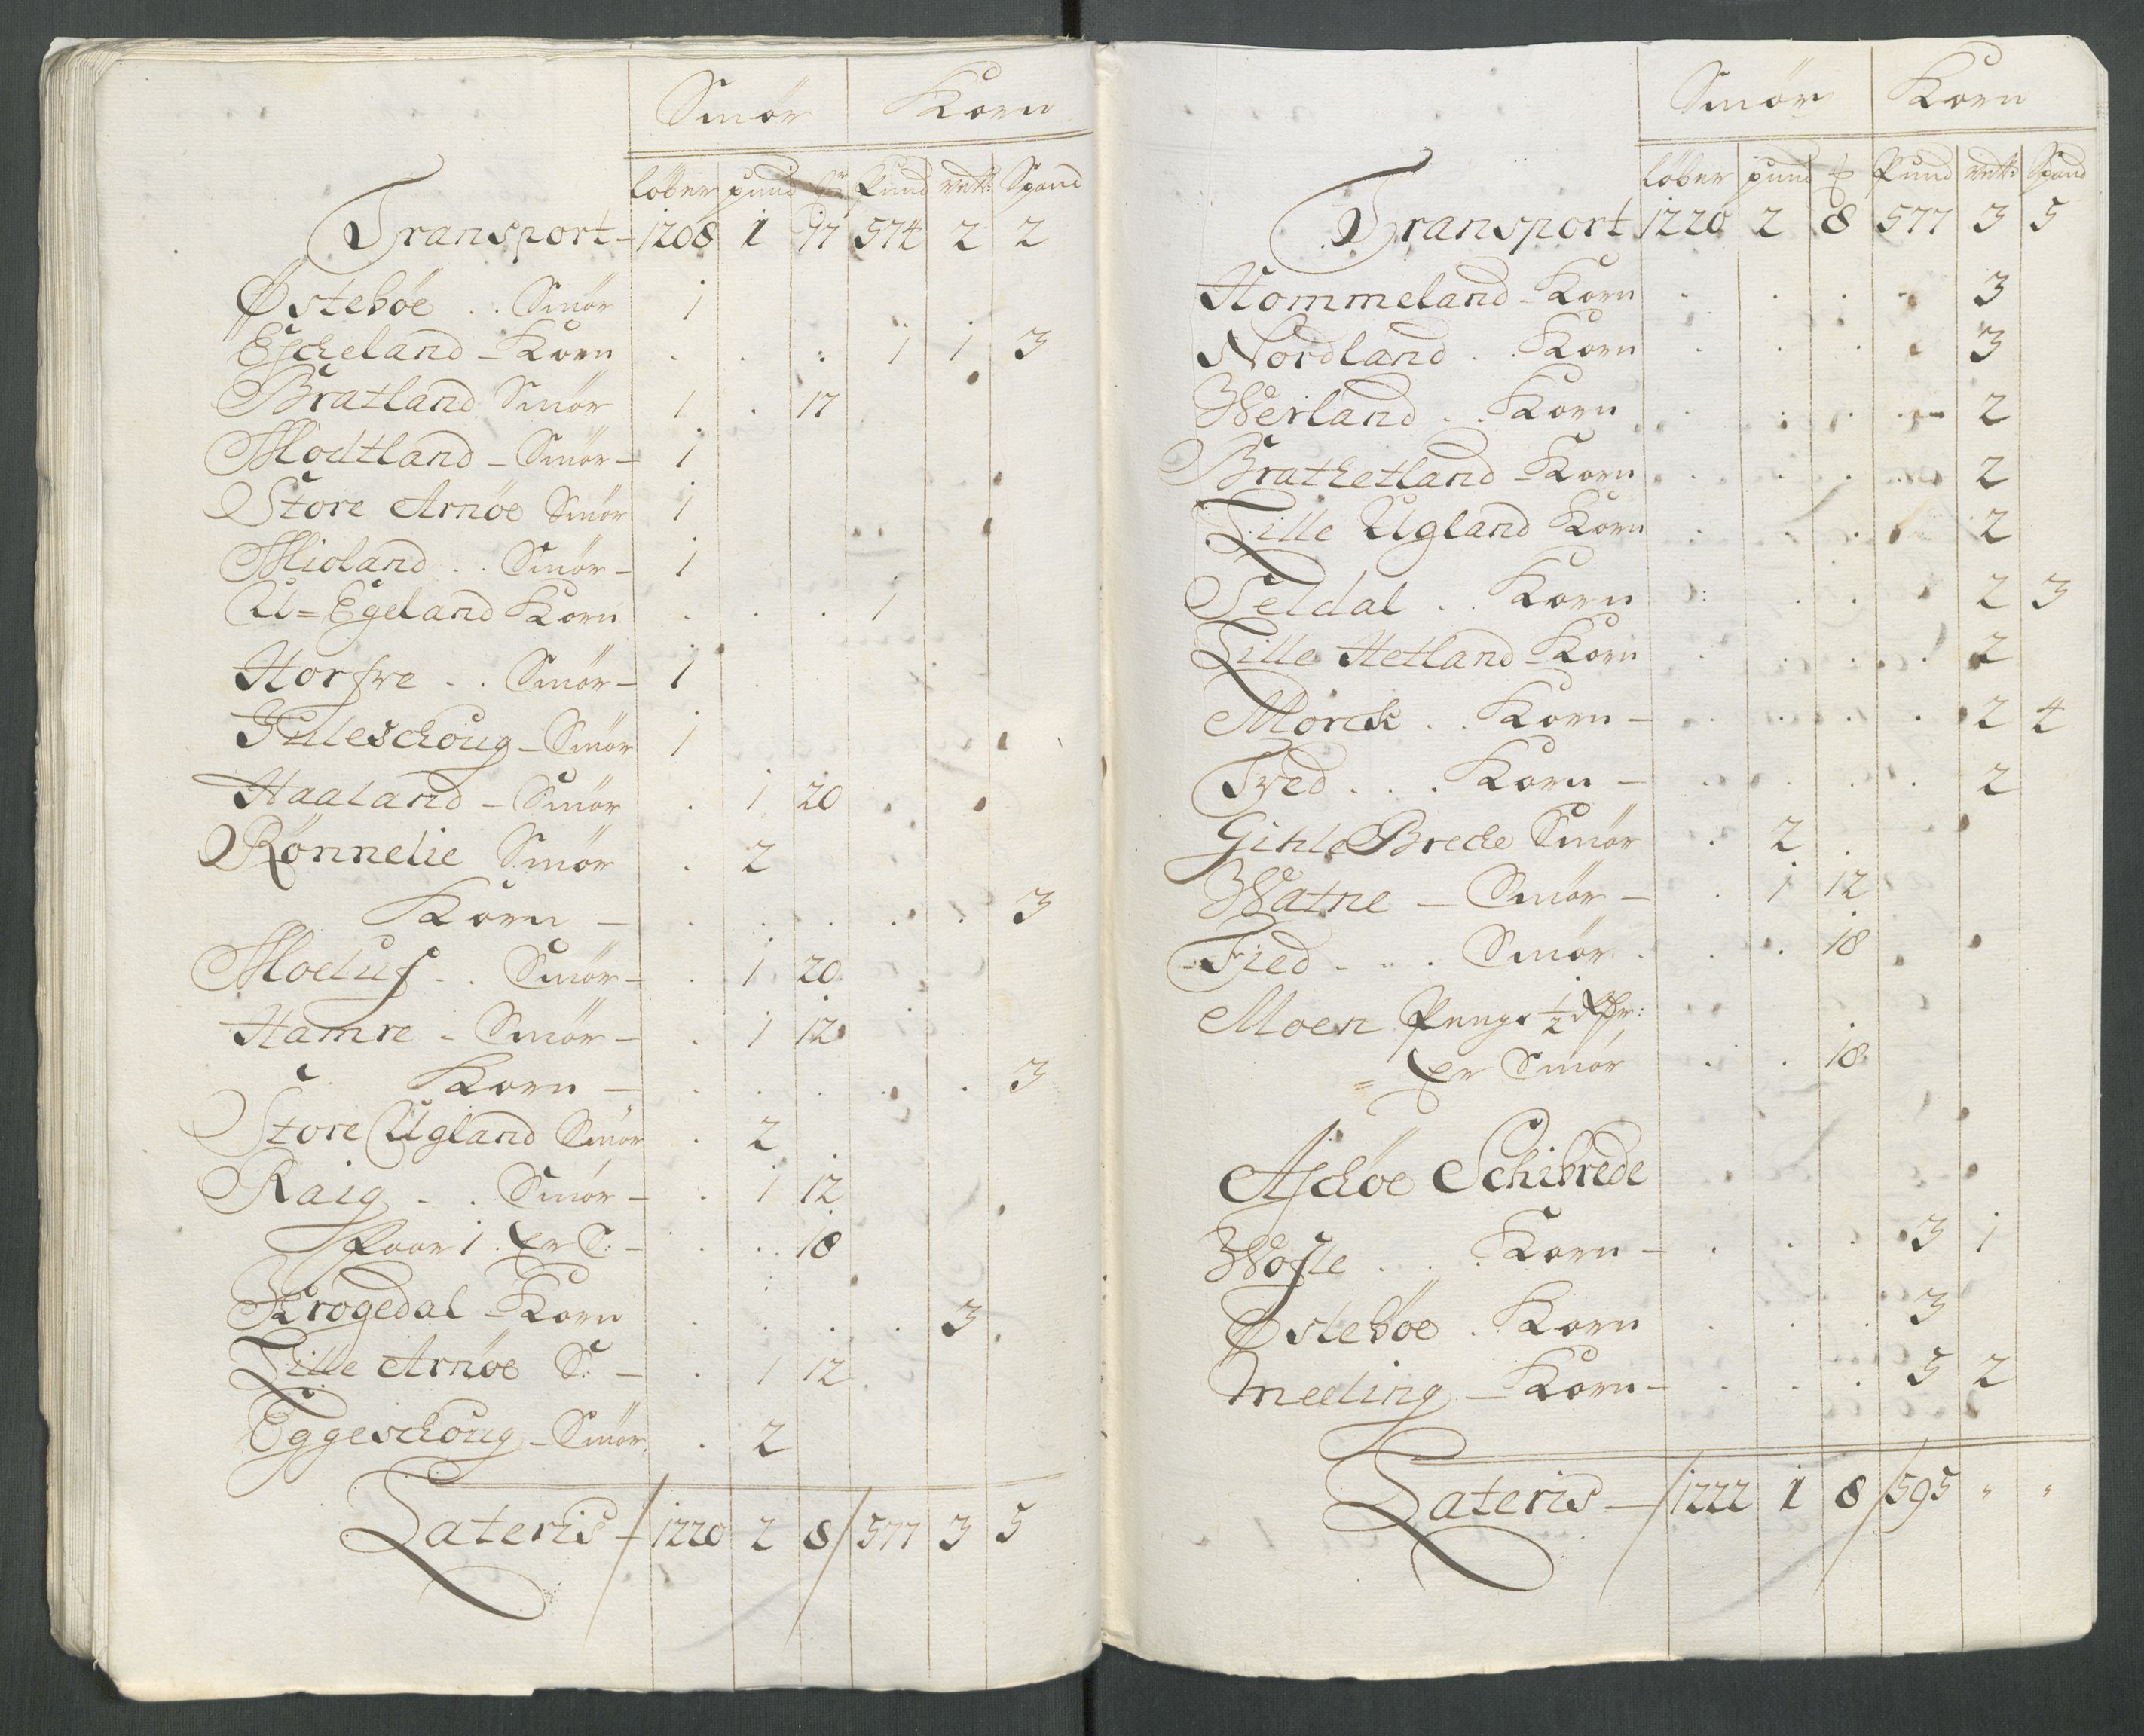 Smör Korn
löber pund Pund vett: Spand
Transport - 1208 1 17 574 2 2
Östeböe . . Smör 1
Escheland - Korn . . . 1 1 3
Bratland Smör 1 . 17
Modtland - Smör - 1
Store Arnöe Smör 1
Mioland . . Smör - 1
U= Egeland Korn . . . 1
Horfve . . Smör - 1
Gulleschoug - Smör 1
Haaland - Smör . 1 20
Rönnelie Smör . 2
Korn - . . . . . 3
Moeluf . . Smör - . 1 20
Hamre - Smör - . 1 12
Korn - . . . . . 3
Store Ugland Smör . 2
Raig . . Smör - . 1 12
Faar 1. er S: - . . 18
Krogedal - Korn . . . . 3
Lille Arnöe S: - . 1 12
Eggeschoug - Smör . 2
Lateris - / 1220 2 8 / 577 3 5
Smör Korn
löber pund ℔ Pund vett: Spand
Transport 1220 2 8 577 3 5
Hommeland - Korn . . . . 3
Nordland . . Korn . . . . 3
Werland . . Korn . . . . 2
Brathetland - Korn . . . . 2
Lille Ugland Korn . . . . 2
Seldal . . Korn . . . . 2 3
Lille Hetland - Korn . . . . 2
Morck . . Korn - . . . . 2 4
Tved . . . Korn - . . . . 2
Brecke Smör . 2
Watne - Smör - . 1 12
Fied . . . Smör . . . 18
Moen Penge ½ dlr:
= er Smör . . 18
Aschöe Schibrede
Wosle . . . Korn - . . . 3 1
Östeböe . . Korn . . . 3
Meeling - Korn - . . . 5 2
Lateris - / 1222 1 8 / 595 " "